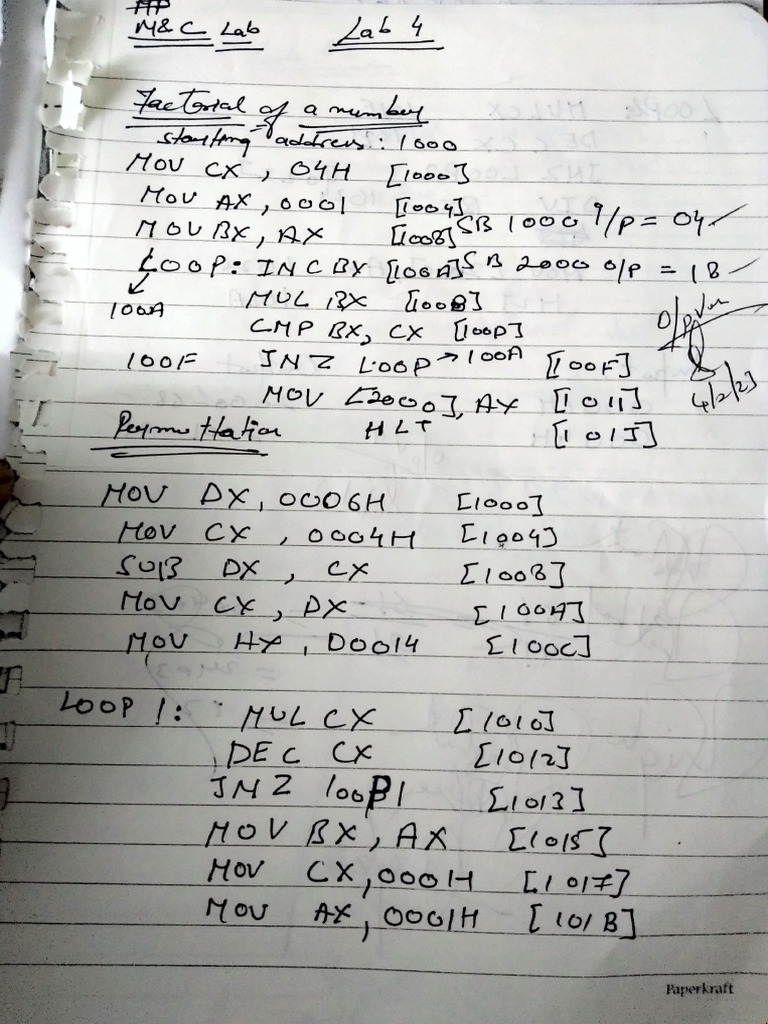 M&C Lab Lab 4
Factorial of a number
starting address: 1000
MOV CX, 04H [1000]
MOV AX, 0001 [1004]
MOV BX, AX [1008] SB 1000 I/P = 04
LOOP: INC BX [100A] SB 2000 O/P = 18
100A MUL BX [100B]
CMP BX, CX [100D]
100F JNZ LOOP → 100A [100F]
MOV [2000], AX [1011]
HLT [1015]
4/2/23
Permuttation
MOV DX, 0006H [1000]
MOV CX, 0004H [1004]
SUB DX, CX [1008]
MOV CX, DX [100A]
MOV AX, 0001H [100C]
LOOP 1: MUL CX [1010]
DEC CX [1012]
JNZ LOOP1 [1013]
MOV BX, AX [1015]
MOV CX, 0001H [1017]
MOV AX, 0001H [101B]
Paperkraft